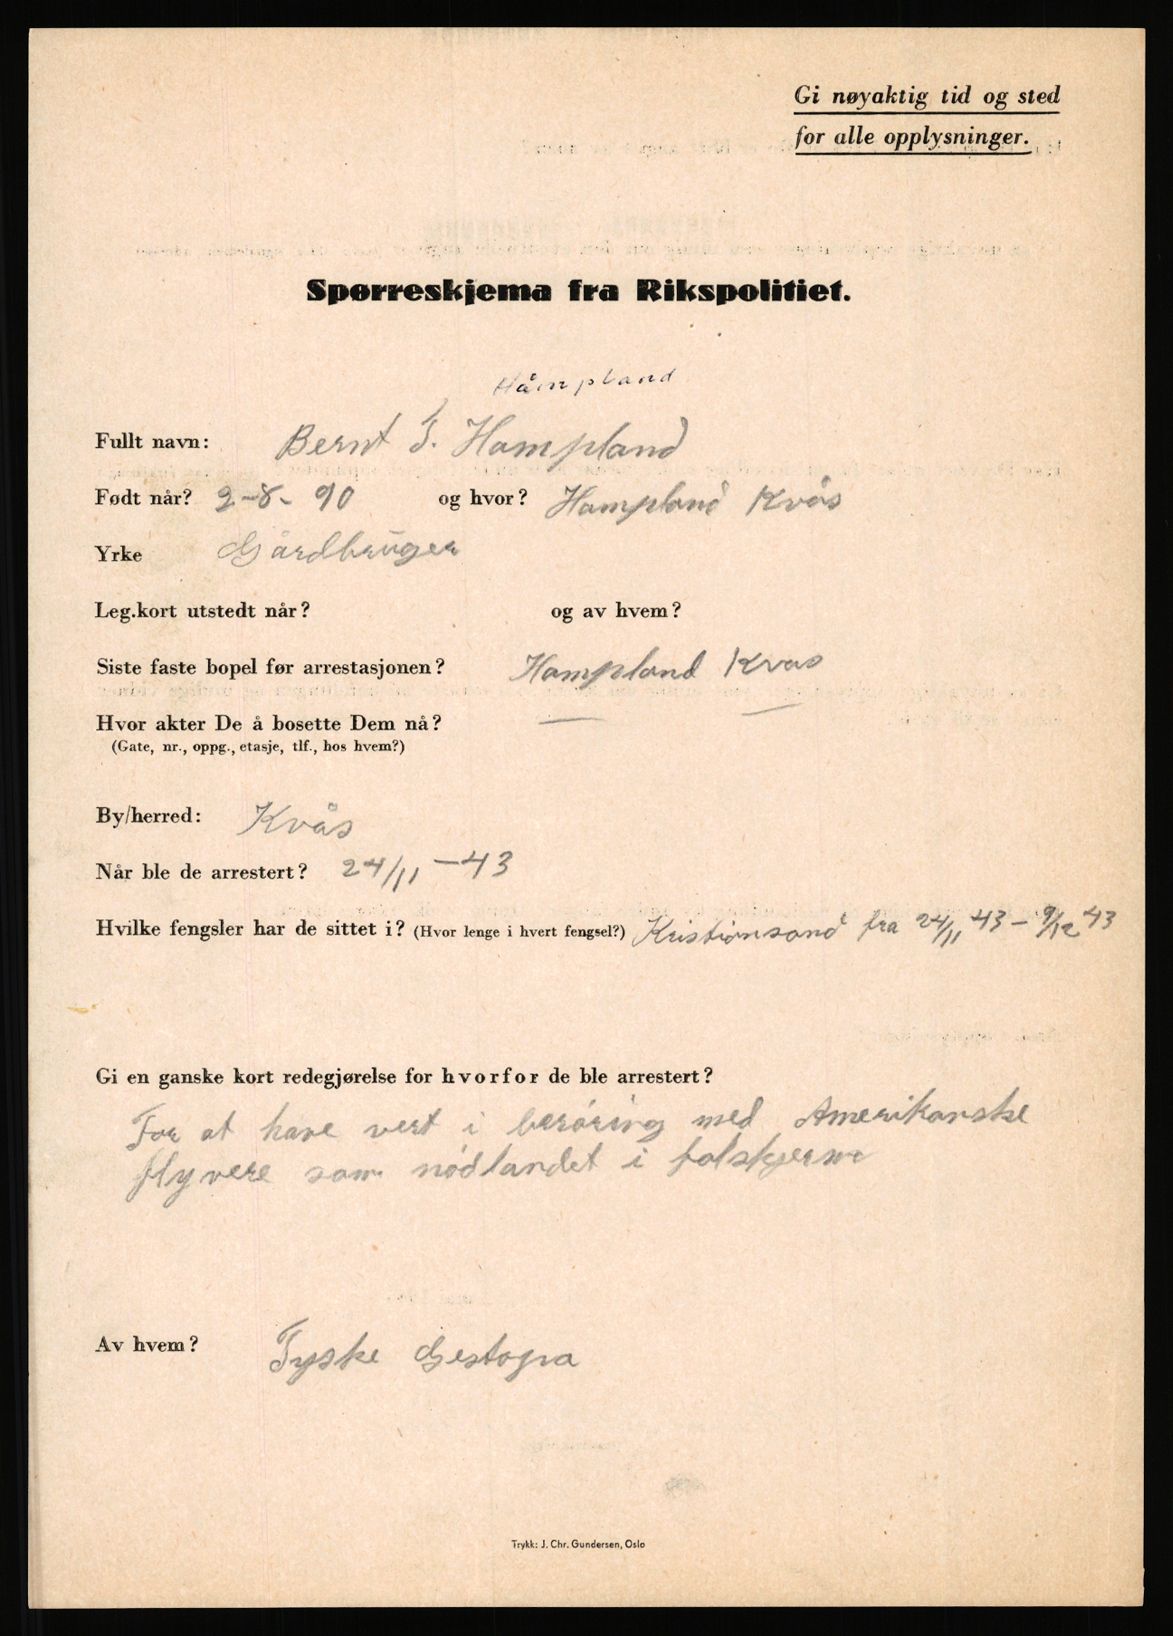 Gi nøyaktig tid og sted
for alle opplysninger.
Spørreskjema fra Rikspolitiet.
Håmpland
Fullt navn: Bernt T. Hampland
Født når? 2-8-90 og hvor? Hampland Kvås
Yrke Gårdbruger
Leg.kort utstedt når? og av hvem?
Siste faste bopel før arrestasjonen? Hampland Kvas
Hvor akter De å bosette Dem nå? — —
(Gate, nr., oppg., etasje, tlf., hos hvem?)
By/herred: Kvås
Når ble de arrestert? 24/11-43
Hvilke fengsler har de sittet i? (Hvor lenge i hvert fengsel?) Kristiansand fra 24/11 43 - 9/12 43
Gi en ganske kort redegjørelse for hvorfor de ble arrestert?
For at have vert i beröring med Amerikanske
flyvere som nödlandet i falskjerm
Av hvem? Tyske Gestapa
Trykk: J. Chr. Gundersen, Oslo